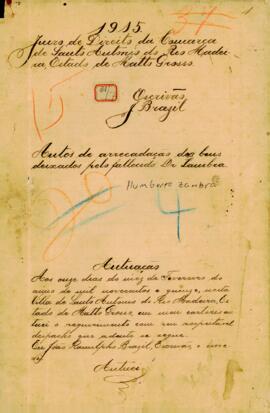 1915
Juizo de Direito da Comarca
de Santo Antonio do Rio Madei
ra, Estado de Matto Grosso.
Escrivão
J Brazil
Autos de arrecadação dos bens
deixados pelo fallecido Dr Zambra
Humberto Zambra
4
Autuação
Aos onze dias do mez de Fevereiro do
anno de mil novecentos e quinze, nesta
Villa de Santo Antonio do Rio Madeira, Es
tado de Matto Grosso, em meu cartorio au
tuei o requerimento com seu respeitavel
despacho que adiante se segue.
Eu João Brazil, Escrivão, o escre
vi
Autuei